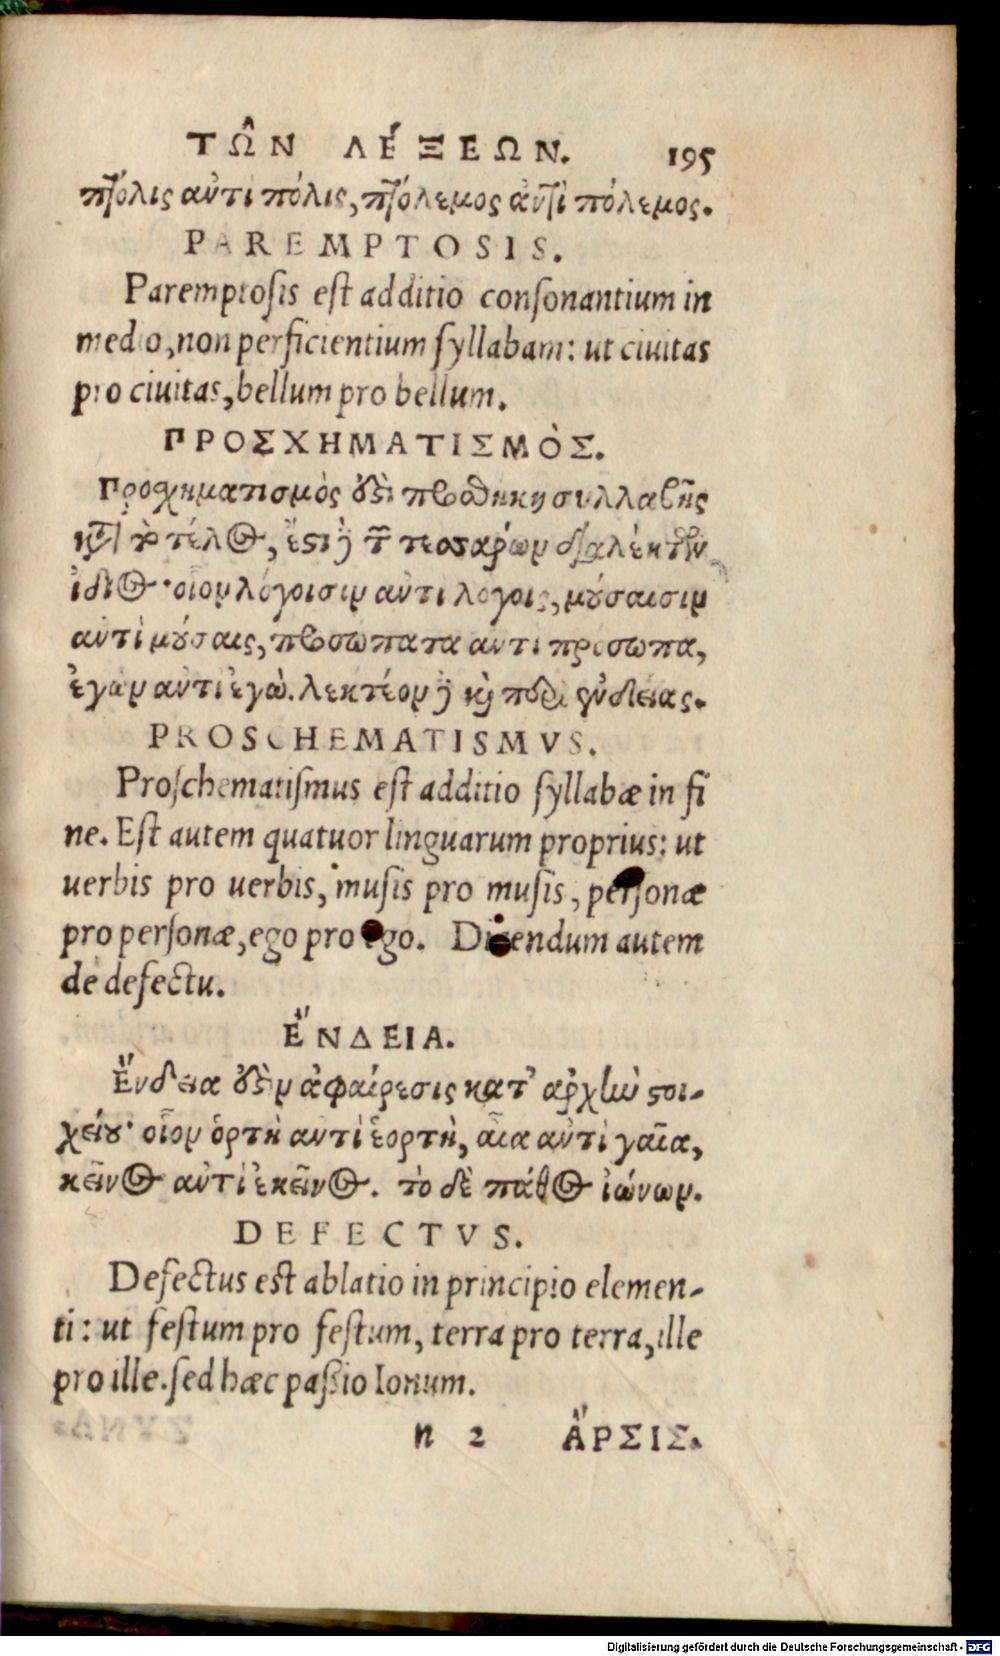 ΤΩ͂Ν ΛΈΞΕΩΝ. 195
πτόλις αὐτι πόλις, πτόλεμος ἀντὶ πόλεμος.
PAREMPTOSIS.
Paremptoſis eſt additio conſonantium in
medio, non perficientium ſyllabam: ut ciuitas
pro ciuitas, bellum pro bellum.
ΠΡΟΣΧΗΜΑΤΙΣΜὸΣ.
Προσχηματισμὸς ὅζὶ προσθήκη συλλαβῆς
κτ̀ τὸ τέλ⊙, ἔστι ȷ̀ τ̃ τεσσαρ́ων διαλέκτων
ἴδι⊙· οἷον λόγοισιν αντι λόγοις, μούσαισιν
αντὶ μούσαις, προσωπατα αντι προσωπα,
ἐγων αντι ἐγώ. λεκτέον ȷ̀ κỳ περὶ ἐνδείας.
PROSCHEMATISMVS.
Proſchematiſmus eſt additio ſyllabæ in fi
ne. Eſt autem quatuor linguarum proprius: ut
uerbis pro uerbis, muſis pro muſis, perſonæ
pro perſonæ, ego pro ego. Dicendum autem
de defectu.
ἜΝΔΕΙΑ.
Ἔνδεια ὅζὶν ἀφαίρεσις κατ' ἀρχὴν στοι-
χείου· οἷον ὁρτὴ αντὶ ἑορτὴ, αἶα αντὶ γαῖα,
κεῖν⊙ αντὶ ἐκεῖν⊙. τὸ δὲ πάθ⊙ ἰώνων.
DEFECTVS.
Defectus est ablatio in principio elemen-
ti: ut feſtum pro feſtum, terra pro terra, ille
pro ille. ſed hæc paßio Ionum.
n 2 ἌΡΣΙΣ.
Digitalisierung gefördert durch die Deutsche Forschungsgemeinschaft - DFG